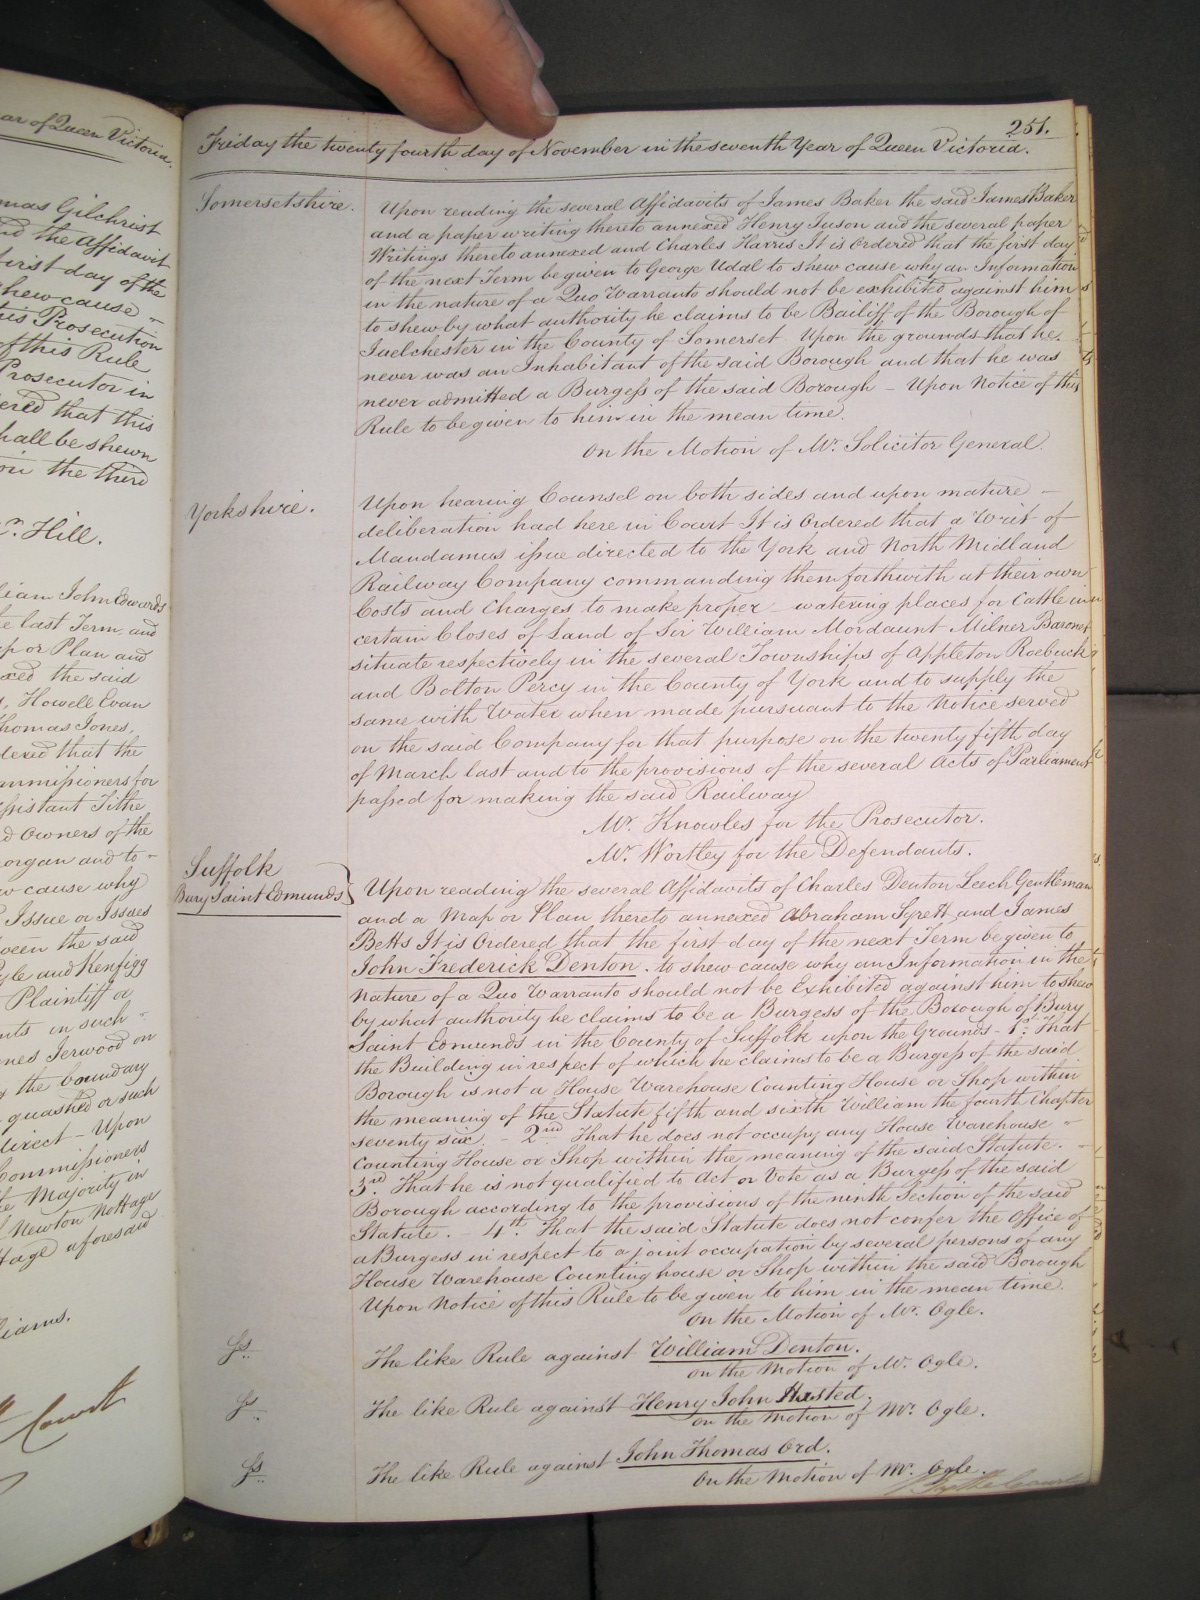 ar of Queen Victoria.
mas Gilchrist
nd the Affidavit
first day of the
shew cause –
his Prosecution
of this Rule
Prosecutor in
ered that this
hall be shewn
on the third
r. Hill.
liam John Edwards
e last Term, and
p or Plan and
xed the said
, Howell Evan
Thomas Jones,
dered that the
ommissioners for
ssistant Tithe
d Owners of the
organ and to –
w cause why
Issue or Issues
ween the said
yle and Kenfigg
Plaintiff or
nts in such –
mes Jerwood on
g the boundary
quashed or such
direct – Upon
Commissioners
e Majority in
Newton Nottage
ttage aforesaid
liams.
Court
251.
Friday the twenty fourth day of November in the seventh Year of Queen Victoria.
Somersetshire.
Upon reading the several Affidavits of James Baker the said James Baker
and a paper writing thereto annexed Henry Tuson and the several paper
Writings thereto annexed and Charles Harris It is Ordered that the first day
of the next Term be given to George Udal to shew cause why an Information
in the nature of a Quo Warranto should not be exhibited against him
to shew by what authority he claims to be Bailiff of the Borough of
Ivelchester in the County of Somerset Upon the grounds that he
never was an Inhabitant of the said Borough and that he was
never admitted a Burgess of the said Borough – Upon Notice of this
Rule to be given to him in the mean time.
On the Motion of Mr. Solicitor General.
Yorkshire.
Upon hearing Counsel on both sides and upon mature –
deliberation had here in Court It is Ordered that a Writ of
Mandamus issue directed to the York and North Midland
Railway Company commanding them forthwith at their own
Costs and Charges to make proper watering places for Cattle in
certain Closes of Land of Sir William Mordaunt Milner Baronet
situate respectively in the several Townships of Appleton Roebuck
and Bolton Percy in the County of York and to supply the
same with Water when made pursuant to the Notice served
on the said Company for that purpose on the twenty fifth day
of March last and to the provisions of the several Acts of Parliament
passed for making the said Railway
Mr. Knowles for the Prosecutor.
Mr. Wortley for the Defendants.
Suffolk
Bury Saint Edmunds}
Upon reading the several Affidavits of Charles Denton Leech Gentleman
and a Map or Plan thereto annexed Abraham Syrett and James
Betts It is Ordered that the first day of the next Term be given to
John Frederick Denton. to shew cause why an Information in the
Nature of a Quo Warranto should not be Exhibited against him to shew
by what authority he claims to be a Burgess of the Borough of Bury
Saint Edmunds in the County of Suffolk upon the Grounds – 1st. That
the Building in respect of which he claims to be a Burgess of the said
Borough is not a House Warehouse Counting House or Shop within
the meaning of the Statute fifth and sixth William the fourth Chapter
seventy six. – 2nd That he does not occupy any House Warehouse –
Counting House or Shop within the meaning of the said Statute. –
3rd. That he is not qualified to Act or Vote as a Burgess of the said
Borough according to the provisions of the ninth Section of the said
Statute. – 4th. That the said Statute does not confer the Office of
a Burgess in respect to a joint occupation by several persons of any
House Warehouse Counting house or Shop within the said Borough
Upon Notice of this Rule to be given to him in the mean time.
On the Motion of Mr. Ogle.
Ss.
The like Rule against William Denton.
On the Motion of Mr. Ogle.
Ss.
The like Rule against Henry John Hasted.
On the Motion of Mr. Ogle.
Ss.
The like Rule against John Thomas Ord.
On the Motion of Mr. Ogle.
By the Court